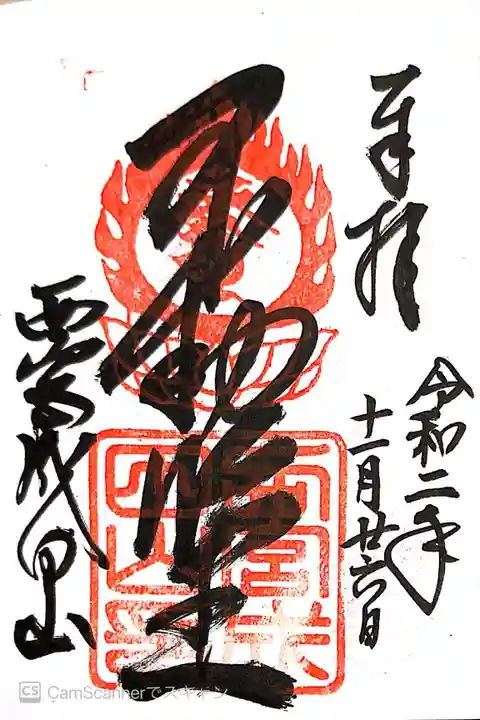 奉拝
令和二年
十一月廿六日
不動明王
西宮成田山
CS CamScannerでスキャン